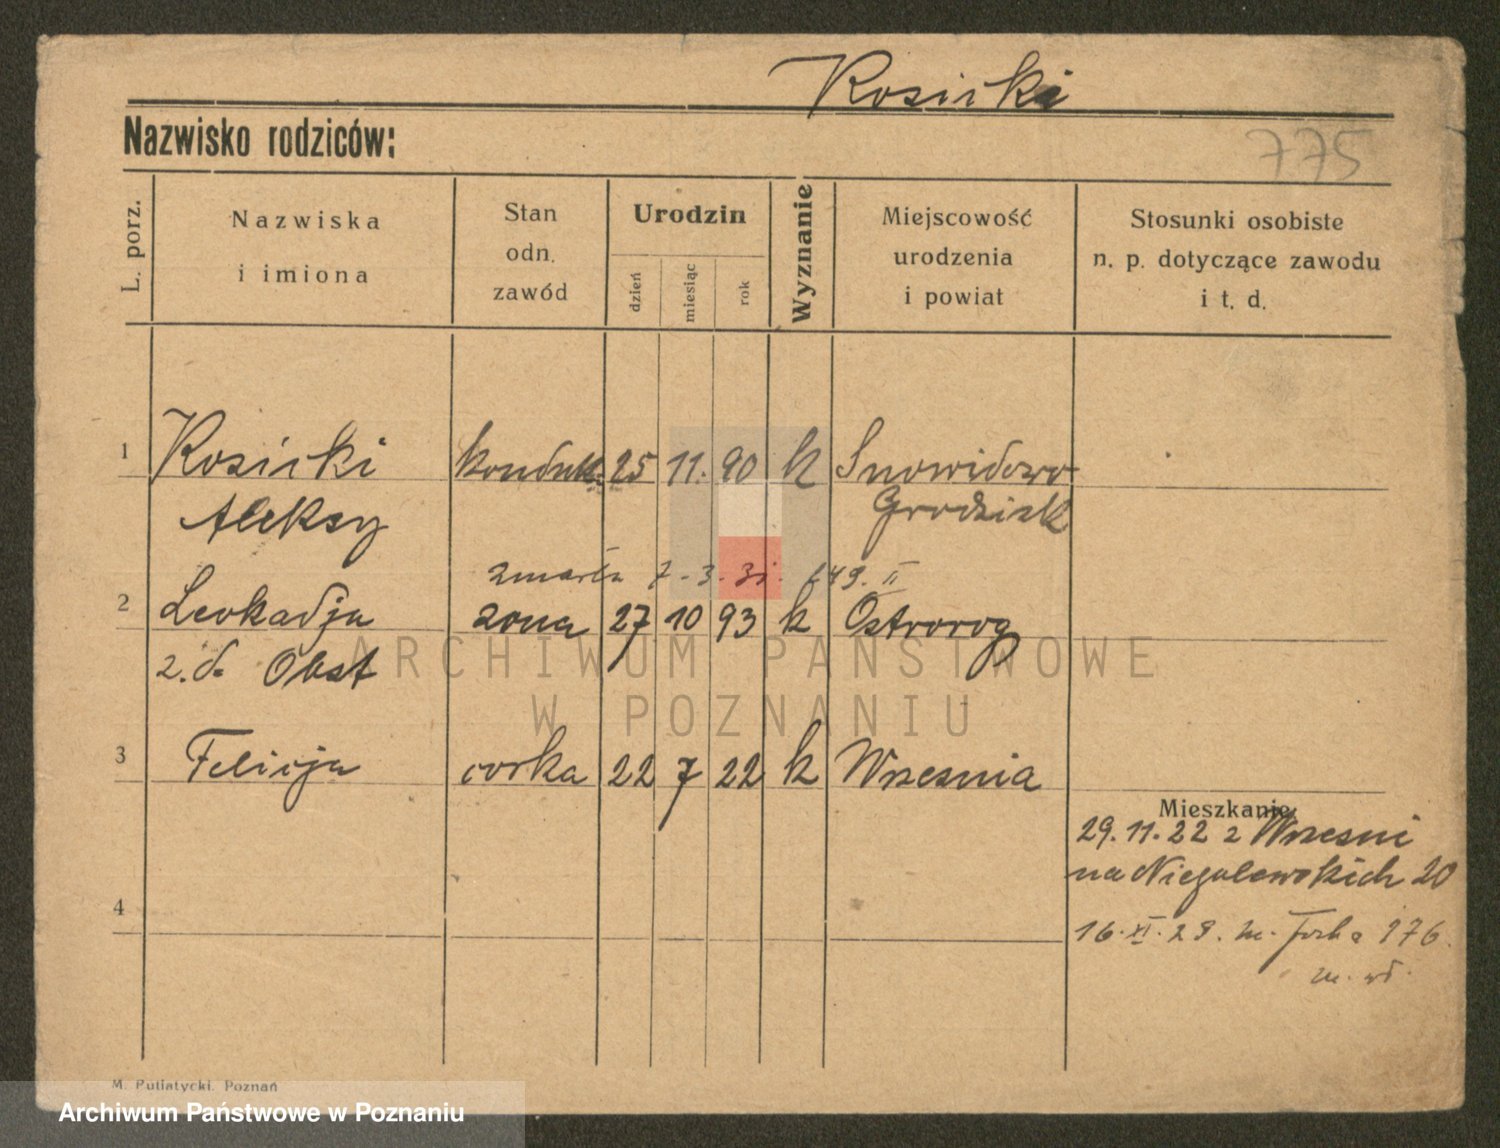 Kosicki
Nazwisko rodziców:
775
L. porz.
Nazwiska
i imiona
Stan
odn.
zawód
Urodzin
dzień
miesiąc
rok
Wyznanie
Miejscowość
urodzenia
i powiat
Stosunki osobiste
n. p. dotyczące zawodu
i t. d.
1 Kosicki konduk. 25 11. 90 k Snowidowo
Aleksy Grodzisk
zmarła 7-3-31. 149. II
2 Leokadja zona 27 10 93 k Ostroróg
z.d. Obst
3 Felicja corka 22 7 22 k Wrzesnia
Mieszkanie:
29.11.22 z Wrzesni
na Niegolewskich 20
4
16.XI.28. m. 176.
M. Putiatycki. Poznań
ARCHIWUM PAŃSTWOWE
W POZNANIU
Archiwum Państwowe w Poznaniu